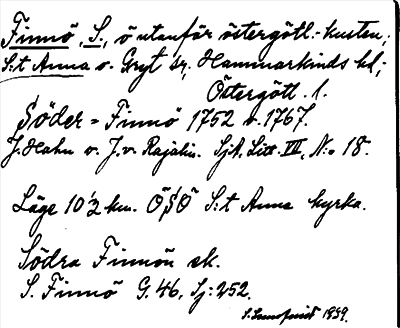 Finnö, S., ö utanför östergötl.-kusten;
S:t Anna o. Gryt sr, Hammarkinds hd;
Östergötl. l.
Söder=Finnö 1752 o. 1767.
J. Hahn o. J. v. Rajalin. SjA. Litt. VII, N:o 18.
Läge 10 1/2 km. ÖSÖ S:t Anna kyrka.
Södra Finnön ek.
S. Finnö G. 46, Sj: 252.
1939.